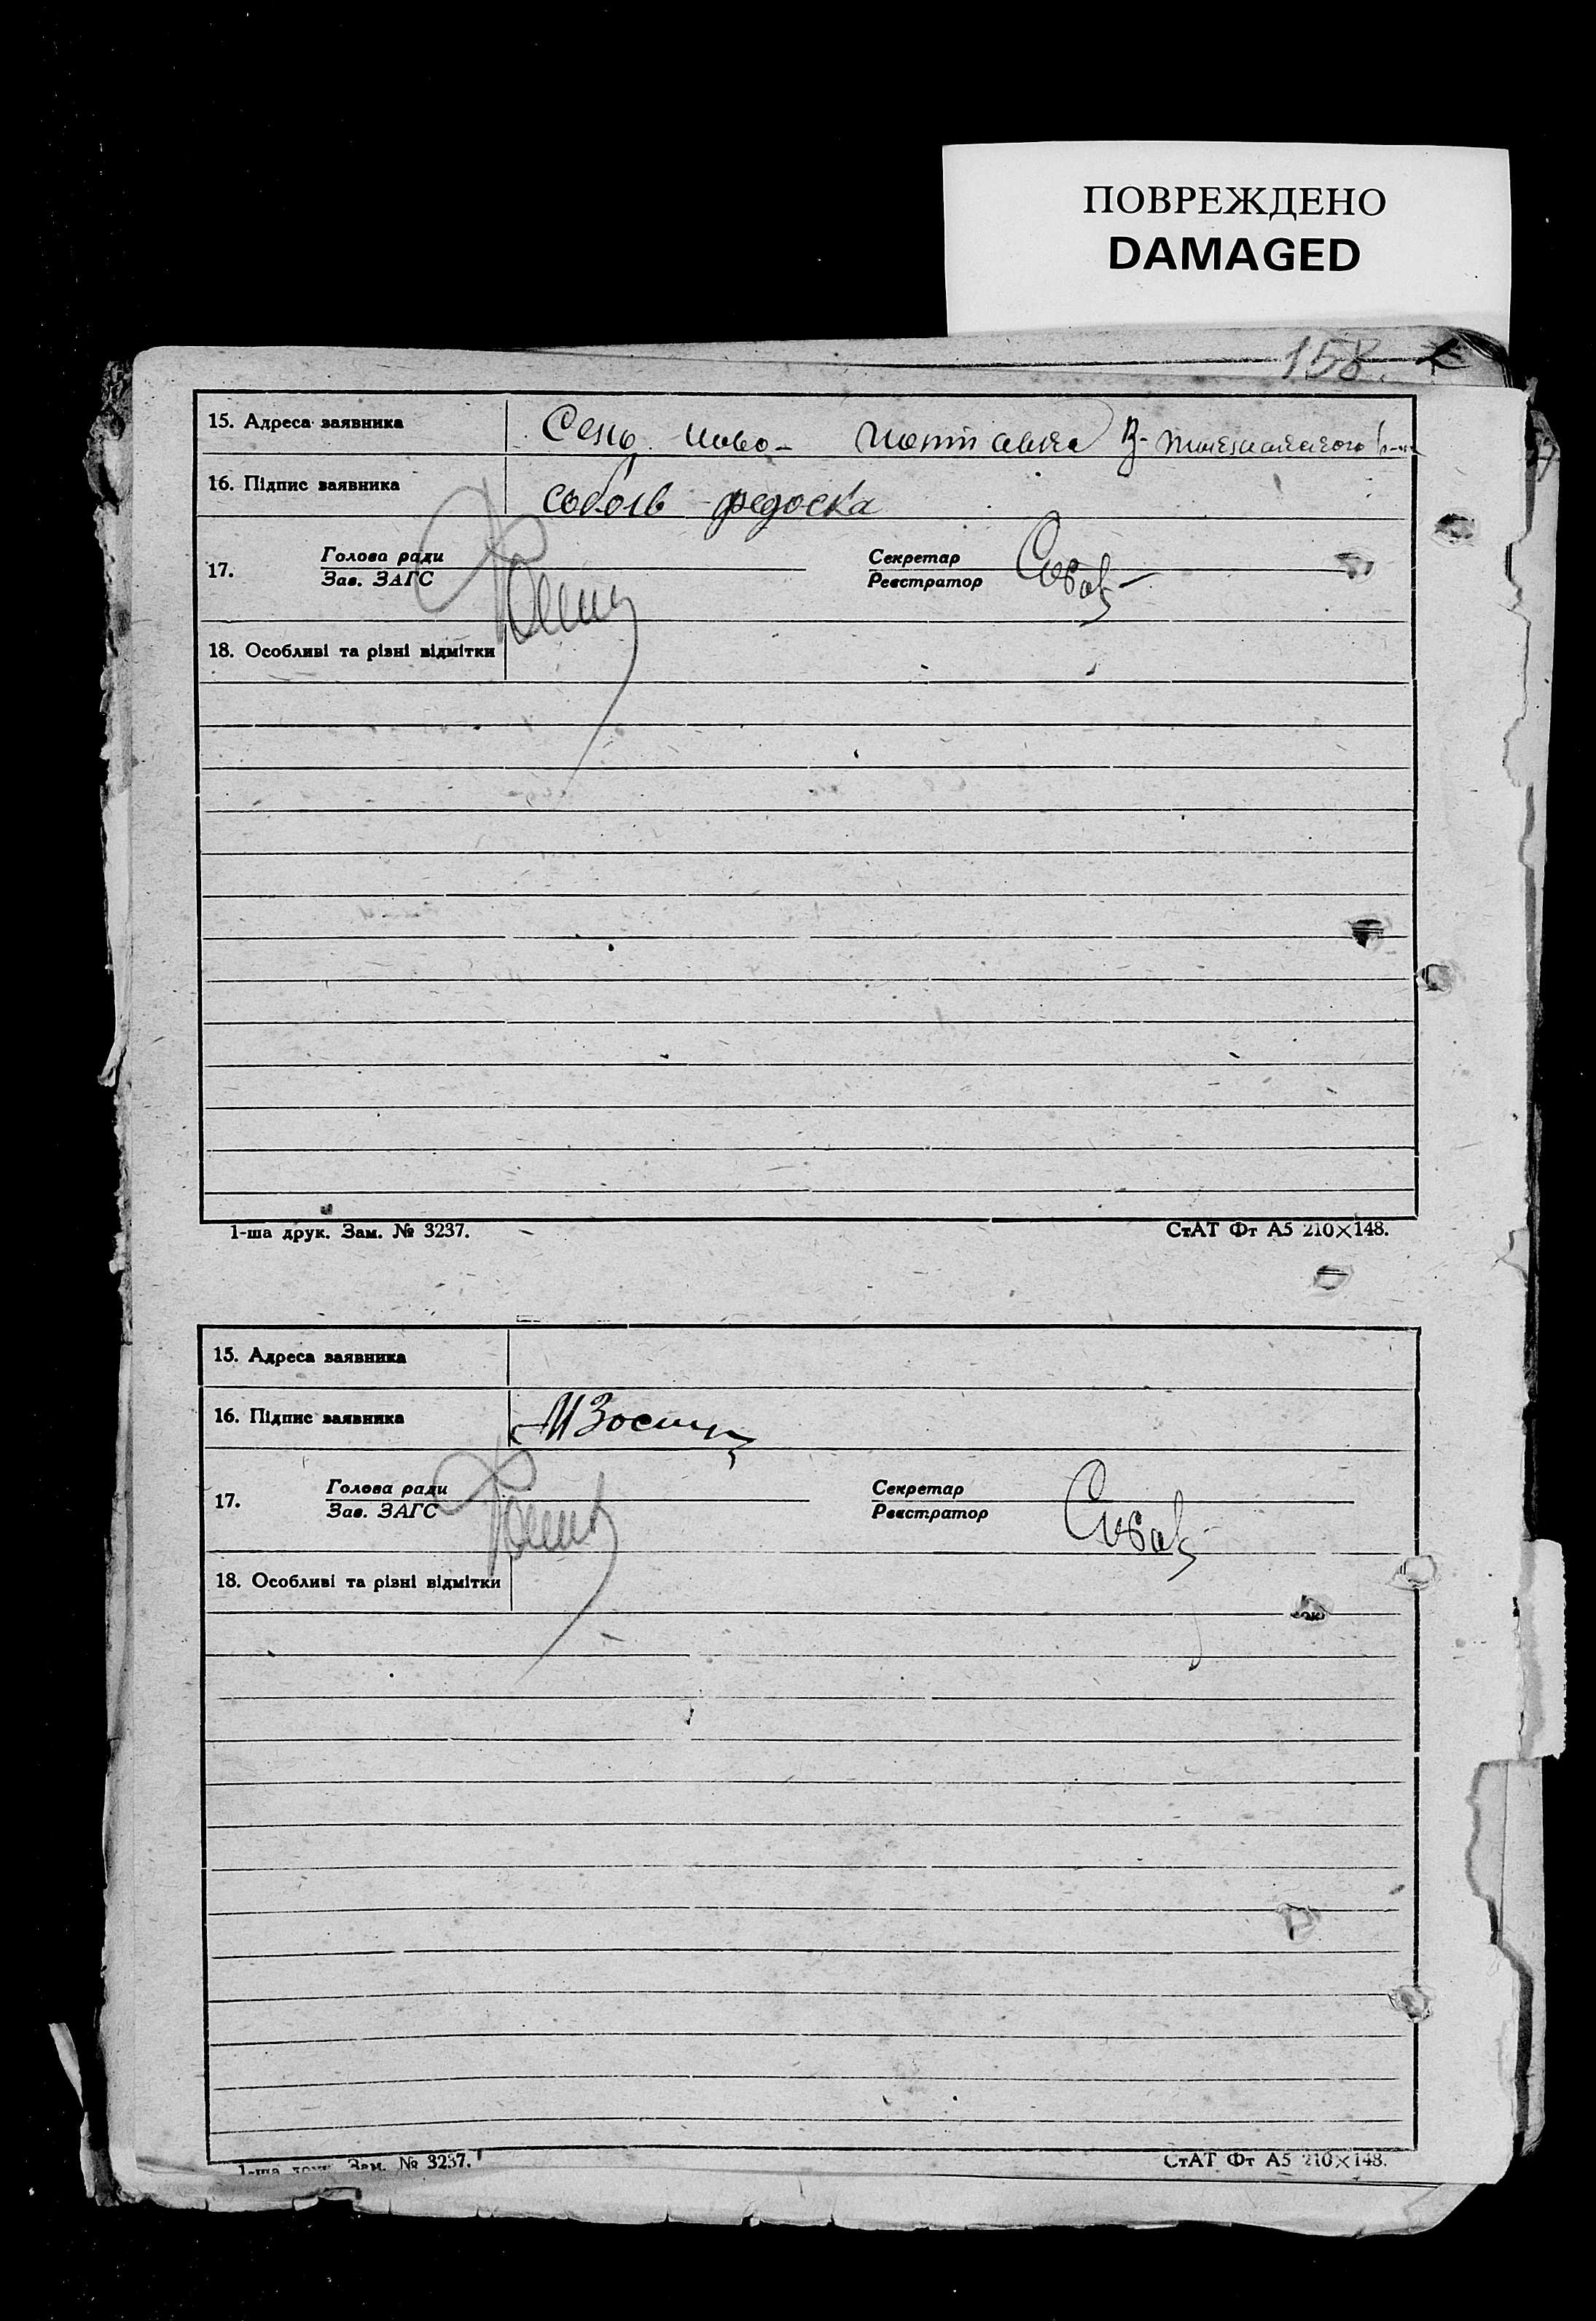 ПОВРЕЖДЕНО
DAMAGED
158
15. Адреса заявника
16. Підпис заявника соболь федоска
17. Голова ради Секретар
Зав. ЗАГС Реєстратор
18. Особливі та різні відмітки
1-ша друк. Зам. № 3237. СтАТ Фт А5 210×148.
15. Адреса заявника
16. Підпис заявника
17. Голова ради Секретар
Зав. ЗАГС Реєстратор
18. Особливі та різні відмітки
1-ша друк. Зам. № 3237. СтАТ Фт А5 210×148.